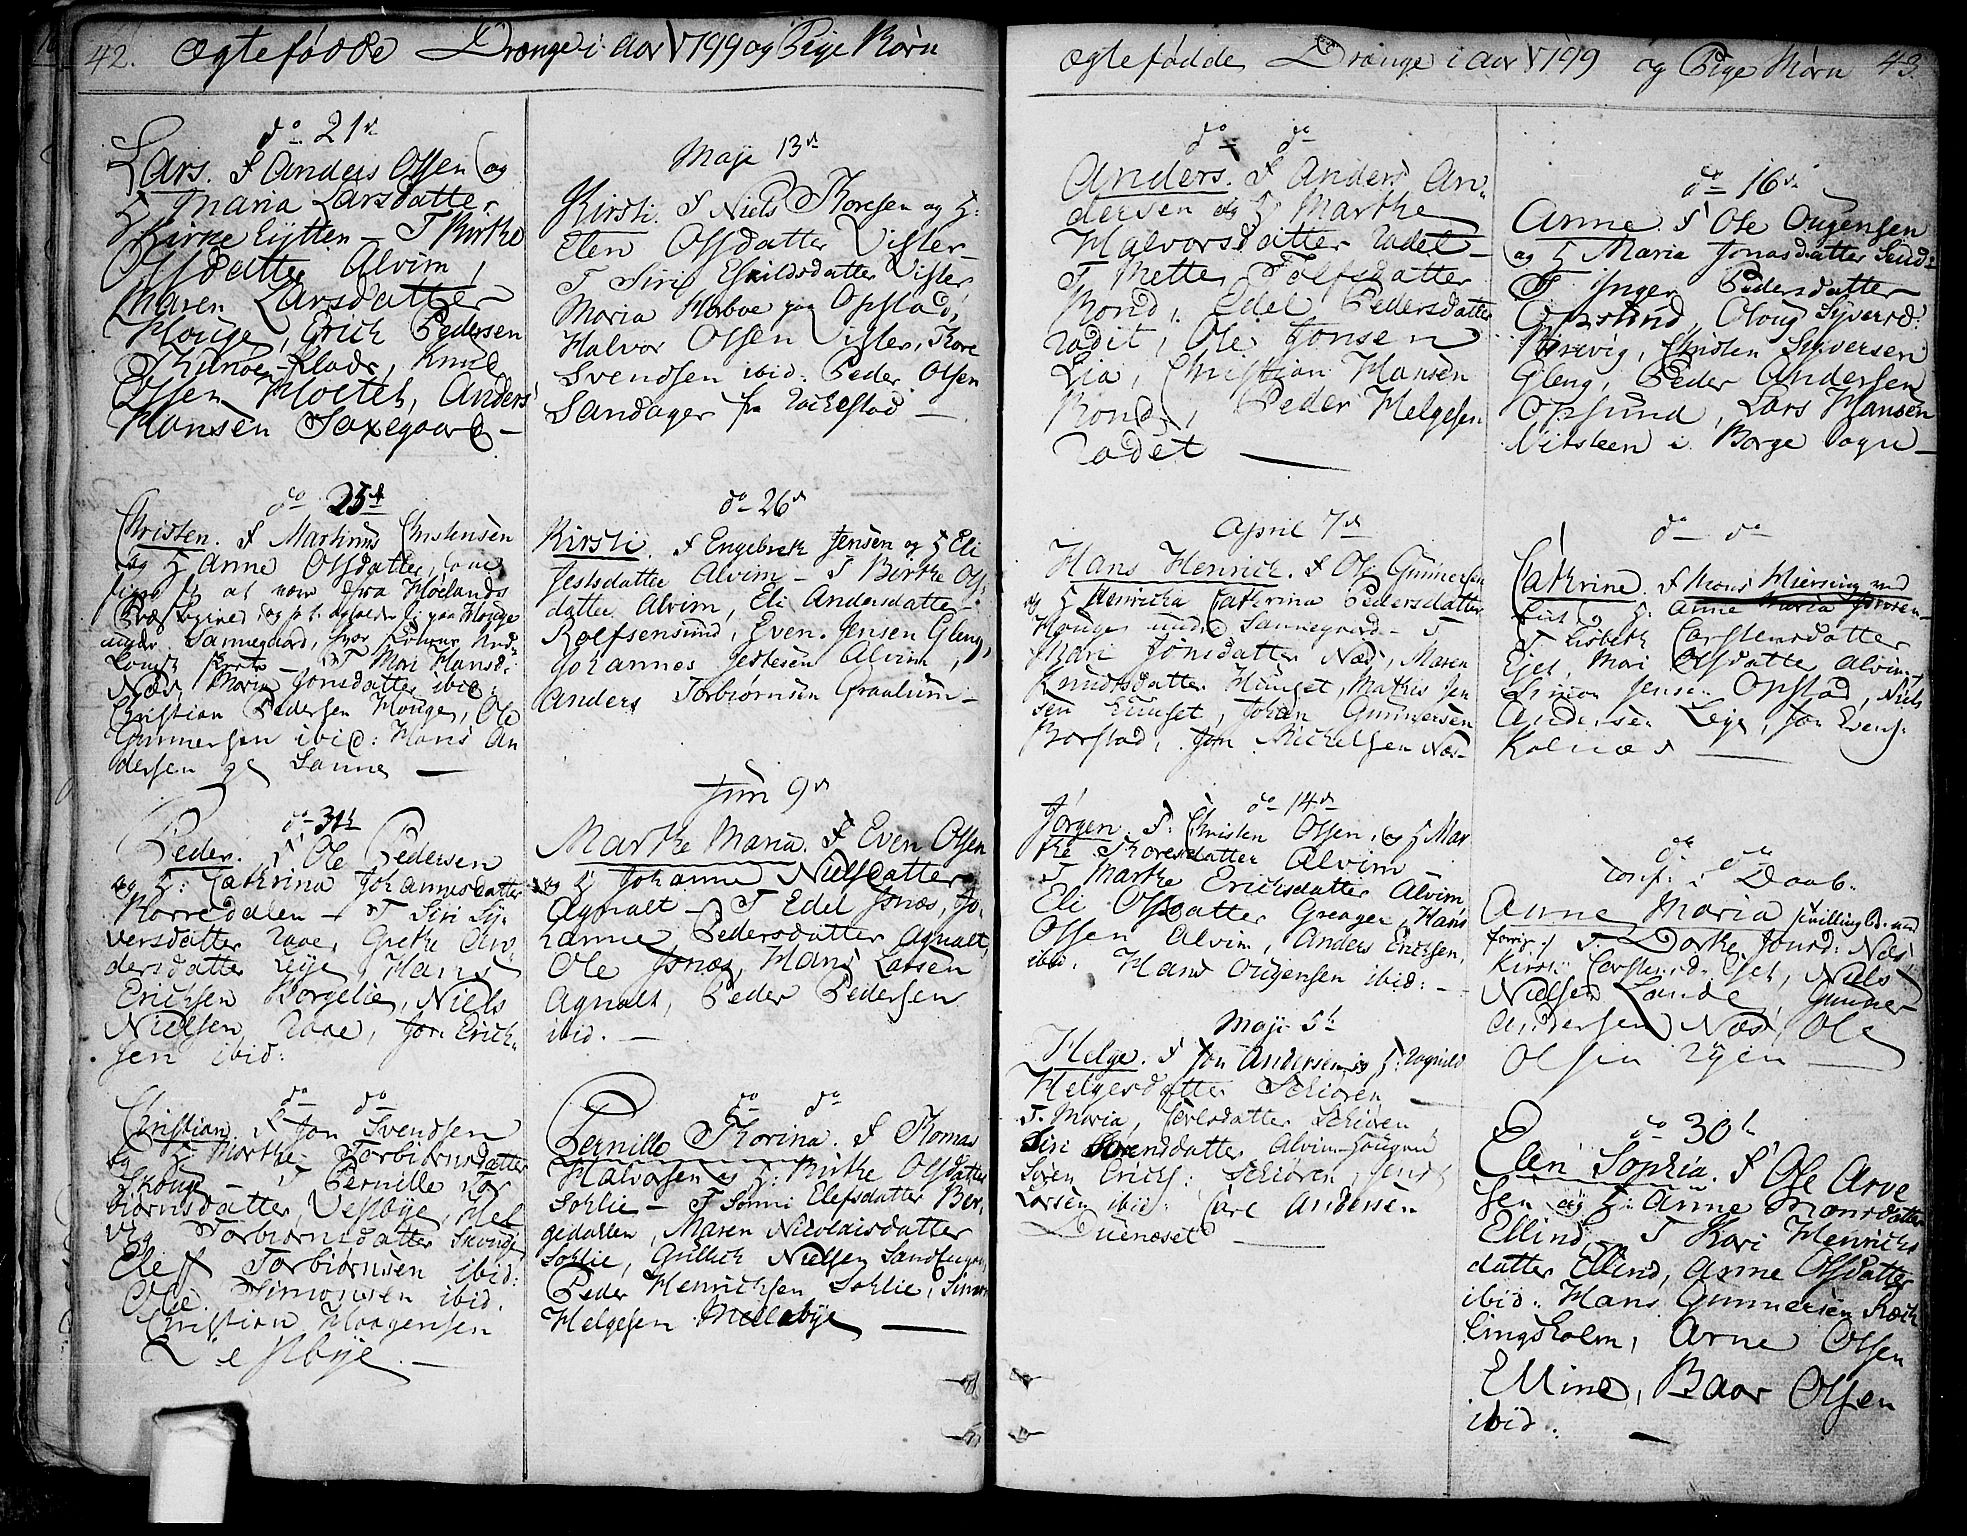 42. Ægtefødde Drænge i Aar 1799 og Pige Børn
do 21d
Lars. F Anders Olsen og
H Maria Larsdatter
Kirke Eytten - T Birthe
Olsdatter Alvim,
Maren Larsdatter
Houge, Erich Pedersen
Knud
Olsen Moeteb, Anders
Hansen Saxegaard -
do 25d
Christen. F Martinus Christensen
og H Anne Olsdatter,
at være fra Høelands
Præstegield, og p. t. opholde sig paa Houge
under Sannegaard,
T Mari Hansd:
Næs, Maria Jonsdatter ibid:
Christian Pedersen Houge, Ole
Gunnersen ibid: Hans An
dersen Sanne -
do 31d
Peder. F Ole Pedersen
og H: Cathrina Johannesdatter
Korredalen - T Siri Sy-
versdatter Raae, Grethe An-
dersdatter Leye, Hans
Erichsen Borgelie, Niels
Nielsen Raae, Jon Erich-
sen ibid:
do do
Christian, F Jon Svendsen
og H Marthe Torbiørnsdatter
Skouge - T Pernille Tor
biørnsdatter, Vestbye, Hel
vig Torbiørnsdatter Skouge
Eleff Torbiørnsen ibid:
Ole Simonsen ibid.
Christian Haagensen
Vestbye. -
Maji 13d
Kirsti. F Niels Thoresen og H:
Elen Olsdatter Visler -
T Siri Eskildsdatter Visler
Maria Korboe paa Opstad,
Halvor Olsen Visler, Thore
Svendsen ibid: Peder Olsen
Sandager fr Rachestad -
do 26d
Kirsti. F Engebreth Jensen og H Eli
Jestsdatter Alvim - T Birthe Ols
datter Alvim, Eli Andersdatter
Rolfsensund, Even Jensen Gleng,
Johannes Jestesen Alvim,
Anders Torbiørnsen Graalum -
Juni 9d
Marthe Maria. F Even Olsen
og H Johanne Nielsdatter
Agnalt - T Edel Jonæs, Jo-
hanne Pedersdatter Agnalt,
Ole Jonæs, Hans Larsen
Agnalt, Peder Pedersen
ibid. -
do do
Pernille Thorina. F Thomas
Halvorsen og H: Birthe Olsdatter
Sohlie - T Sønni Elefsdatter Ber-
gedalen, Maren Nicolaisdatter
Sohlie, Gullich Nielsen Sandbugten,
Peder Henrichsen Sohlie, Simon
Helgesen Mellebye -
Ægtefødde Drænge i Aar 1799 og Pige Børn 43.
do do
Anders. F Anders An-
dersen og H Marthe
Halvorsdatter Radet -
T Mette Tolfsdatter
Rond, Edel Pedersdatter
Radet, Ole Jonsen
Lia, Christian Hansen
Rond, Peder Helgesen
Radet -
April 7d
Hans Henrich. F Ole Gunnersen
og H Henricka Catherina Pedersdatter
Houge under Sannegaard - T
Mari Jonsdatter Næs, Maren
Knudsdatter Huuset, Mathis Jen
sen Huuset, Johan Gunnersen
Borstad, Jon Michelsen Næs -
do 14d
Jørgen. F: Christen Olsen, og H Mar
the Thoresdatter Alvim -
T Marthe Erichsdatter Alvim
Eli Olsdatter Greager, Hans
Olsen Alvim, Anders Erichsen,
ibid. Hans Ougensen ibid: -
Maji 5d
Helge. F Jon Andersen og H: Ragnild
Helgesdatter Schiøren -
T. Maria Carlsdatter Schiøren
Siri Sørensdatter Alvim-Hougen
Søren Erichs: Schiøren, Jens
Larsen ibid: Carl Andersen
Duenæset -
do 16d
Anne. F Ole Ougensen
og H Maria Jonasdatter Sund -
T Inger Pedersdatter
Opsund, Oloug Syverd:
Brevig, Christen Syversen
Gleng, Peder Andersen
Opsund, Lars Hansen
Nitsteen i Borge Sogn -
do do
Cathrine. F Mons
og H: Anne Maria Jensen
T Lisbeth Carstensdatter
Eset, Mari Olsdatter Alvim,
Simon Jensen Opstad, Niels
Andersen Leye, Jon Evens:
Kolnæs -
do do
conf: i Daab.
Anne Maria tvilling B. med
forrige T. Dorthe Jonsd: Næs
Kirsti Carstensd: Eset, Niels
Nielsen Lande, Gunner
Andersen Næs, Ole
Olsen Ryen -
do 30d
Elen Sophia. F Ole Arve
sen og H: Anne Monsdatter
Ellind - T Kari Henrichs
datter Ellind, Anne Olsdatter
ibid: Hans Gunnersen Kæth
lingsholm, Arne Olsen
Ellind, Baar Olsen
ibid. -